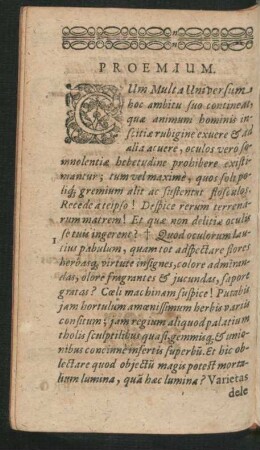 PROEMIUM.
CUm Multa Universum
hoc ambitu suo contineat,
quæ animum hominis in-
scitiæ rubigine exuere & ad
alia acuere, oculos vero so-
mnolentiæ hebetudine prohibere existi-
mantur; tum vel maxime, quos soli po-
liq; gremium alit ac sustentat flosculos.
Recede à teipso! Despice rerum terrena-
rum matrem! Et quæ non delitiæ oculis
se tuis ingerent? † Quod oculorum lau-
1 tius pabulum, quam tot adspectare flores
herbasq; virtute insignes, colore admiran-
das, olore fragrantes & jucundas, sapore
gratas? Cœli machinam suspice! Putabis
jam hortulum amœnissimum herbis variis
consitum; jam regium aliquod palatium
tholis sculptilibus quasi, gemmisq; & unio-
nibus concinne insertis superbũ. Et hic ob-
lectare quod objectũ magis potest morta-
lium lumina, quã hæc lumina? Varietas
dele